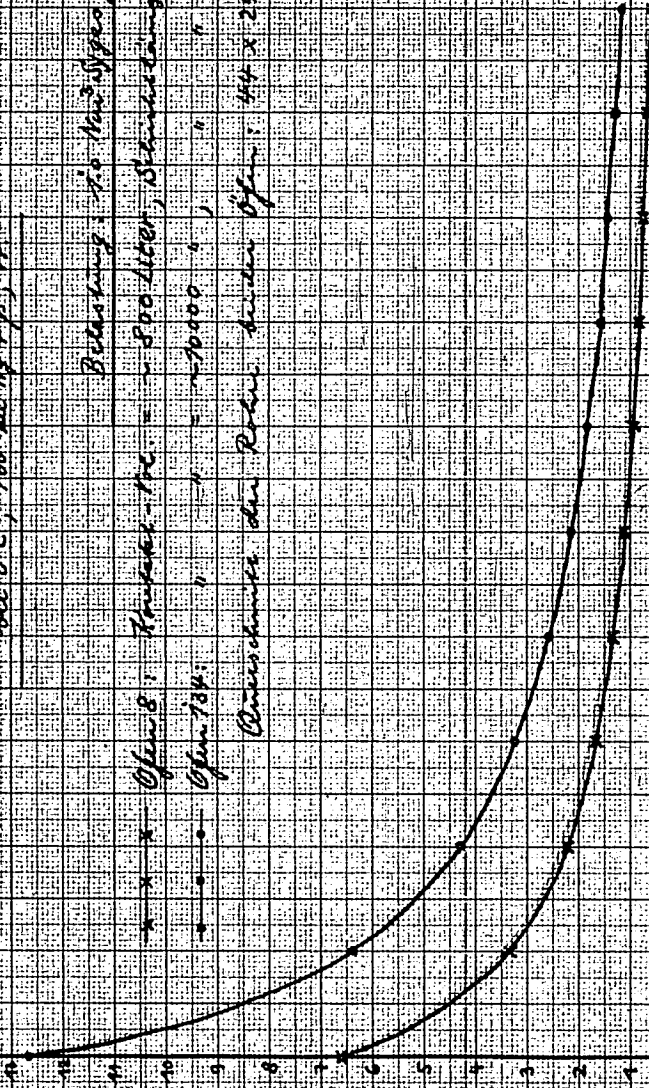 Belastung: 1.0 Nm³ Sygas
Ofen 8: Kontakt-Vol = ~ 800 Liter, Schichtläng
Ofen 134: " " = ~ 10000 ", " "
Querschnitt der Rohre beider Öfen: 44 x 2
11
10
9
8
7
6
5
4
3
2
1